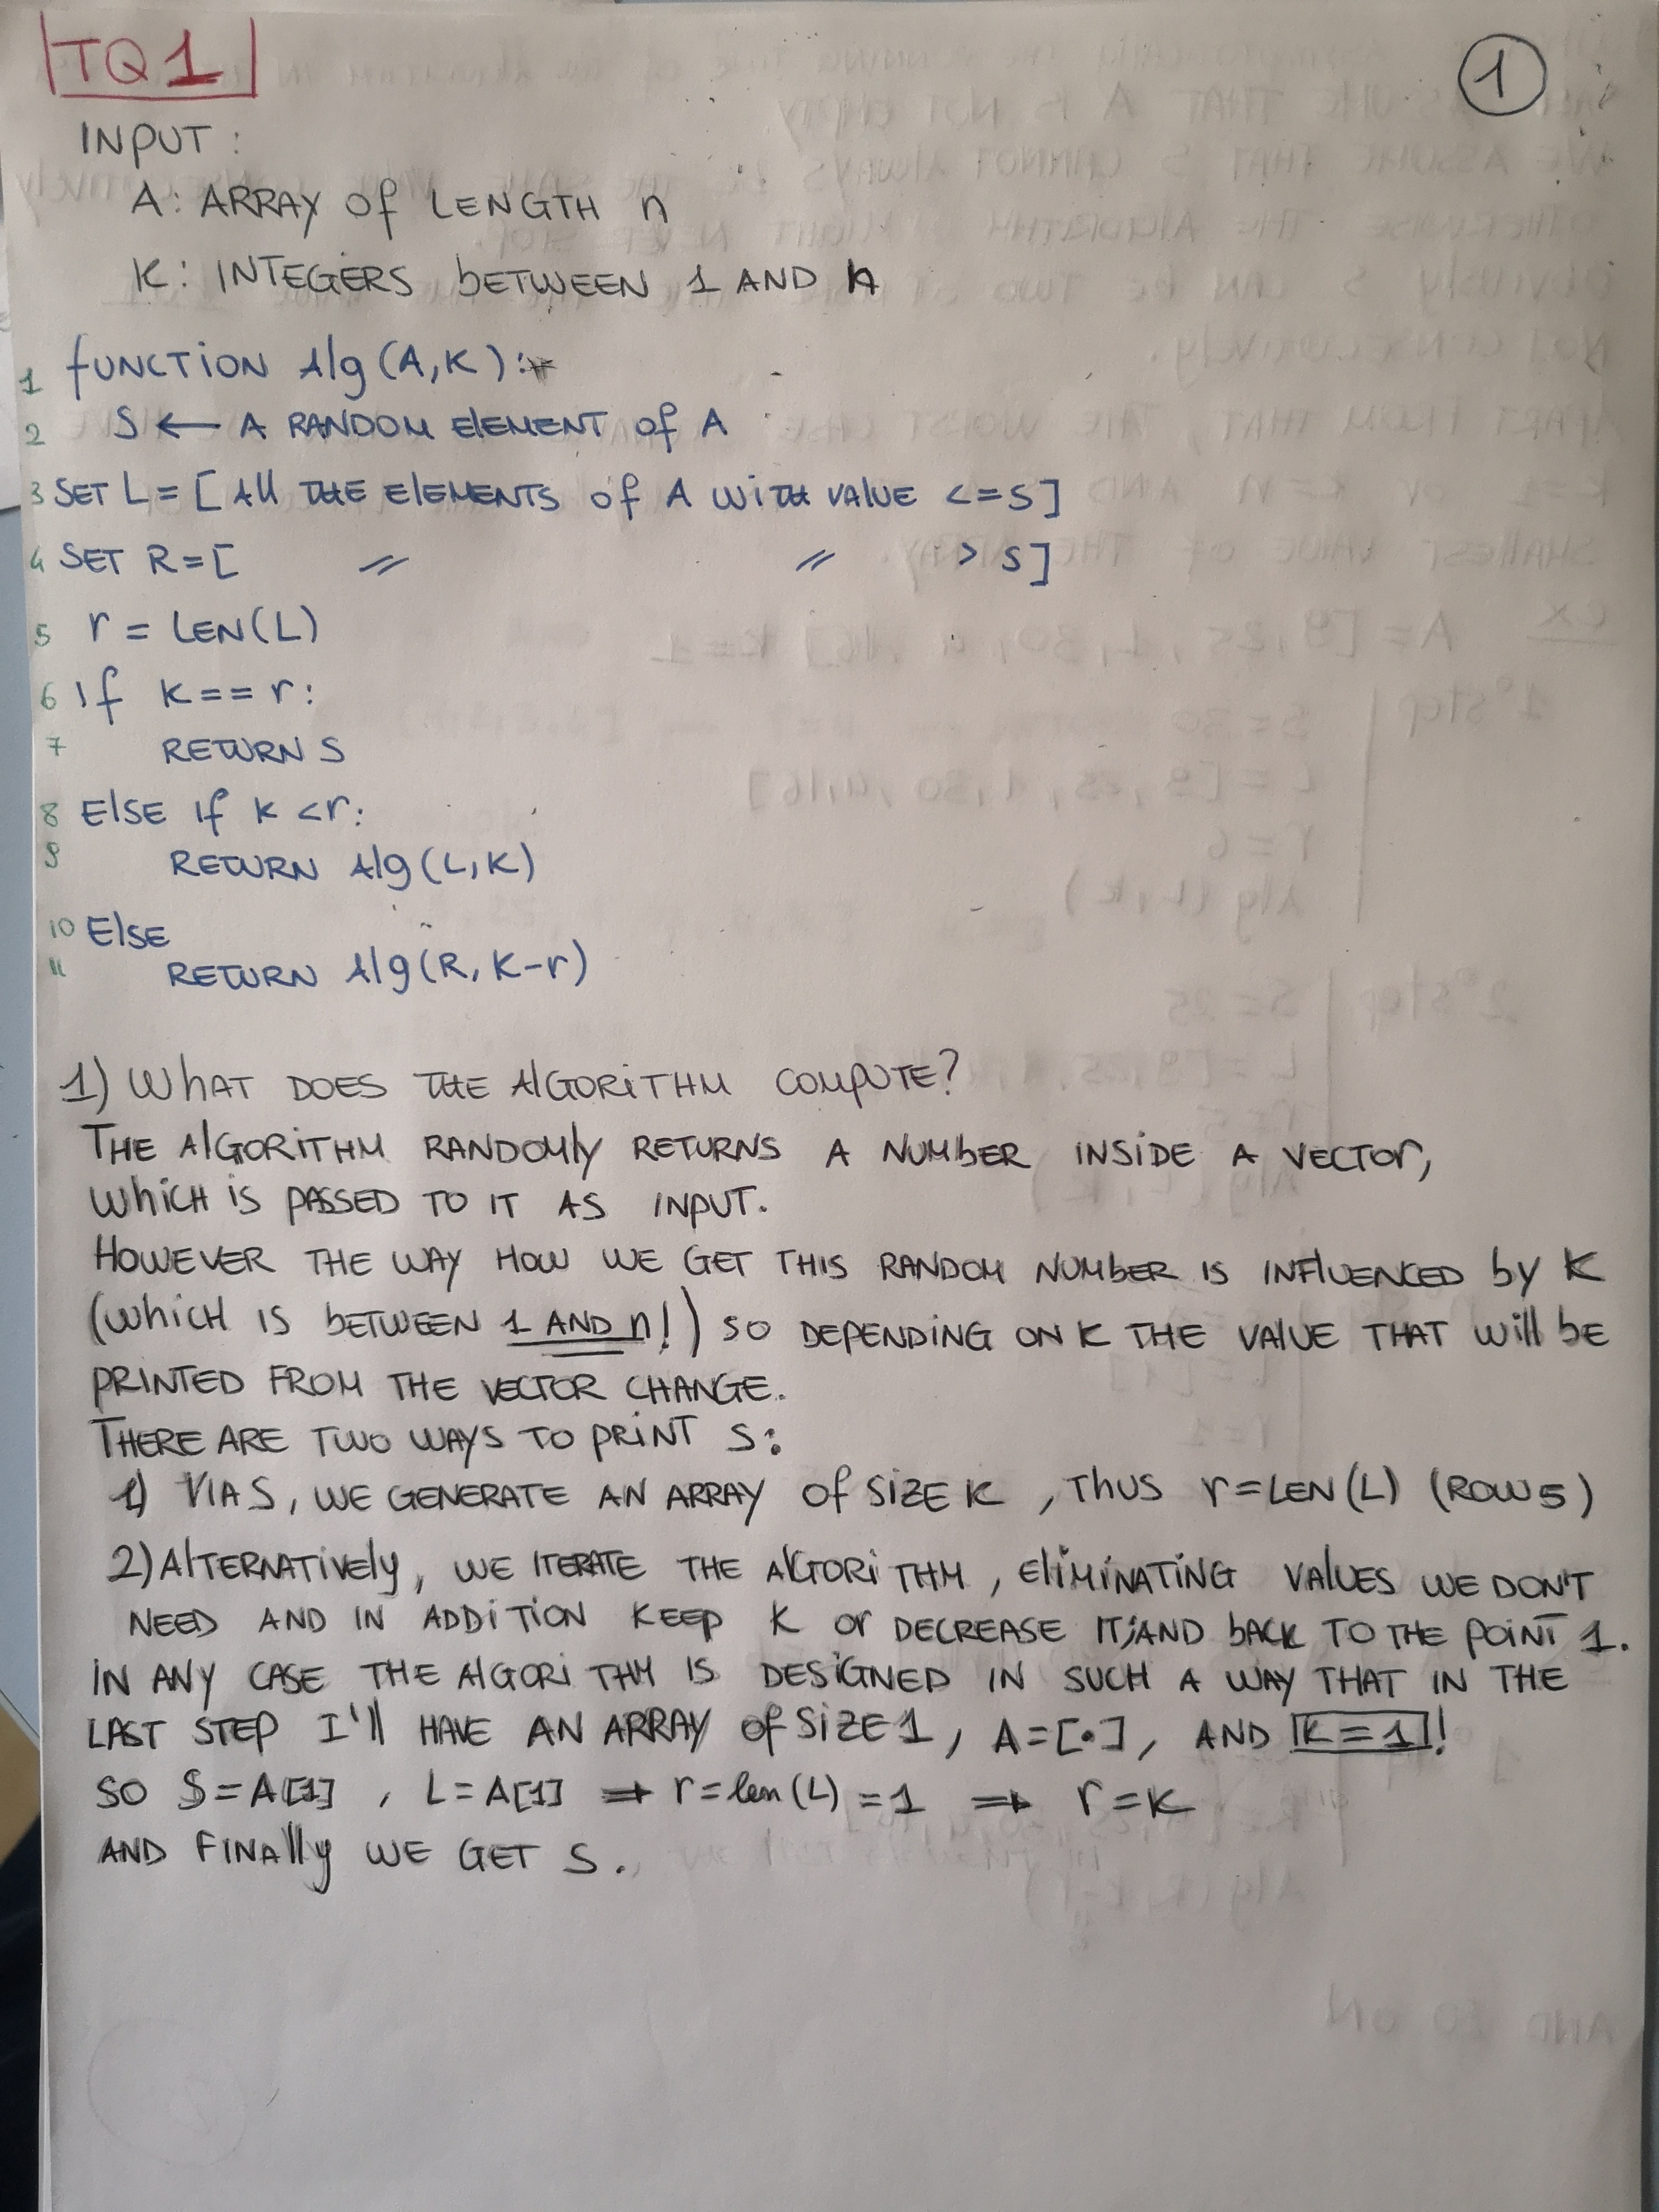 TQ1
1
INPUT:
A: ARRAY OF LENGTH n
K: INTEGERS BETWEEN 1 AND n
1 FUNCTION Alg(A,K):
2 S ← A RANDOM ELEMENT OF A
3 SET L = [ALL THE ELEMENTS OF A WITH VALUE <=S]
4 SET R = [ // // > S]
5 r = LEN(L)
6 IF K == r:
7 RETURN S
8 ELSE IF K < r:
9 RETURN Alg(L,K)
10 ELSE
11 RETURN Alg(R, K-r)
1) WHAT DOES THE ALGORITHM COMPUTE?
THE ALGORITHM RANDOMLY RETURNS A NUMBER INSIDE A VECTOR,
WHICH IS PASSED TO IT AS INPUT.
HOWEVER THE WAY HOW WE GET THIS RANDOM NUMBER IS INFLUENCED BY K
(WHICH IS BETWEEN 1 AND n!) SO DEPENDING ON K THE VALUE THAT WILL BE
PRINTED FROM THE VECTOR CHANGE.
THERE ARE TWO WAYS TO PRINT S:
1) VIA S, WE GENERATE AN ARRAY OF SIZE K, THUS r=LEN(L) (ROW 5)
2) ALTERNATIVELY, WE ITERATE THE ALGORITHM, ELIMINATING VALUES WE DON'T
NEED AND IN ADDITION KEEP K OR DECREASE IT; AND BACK TO THE POINT 1.
IN ANY CASE THE ALGORITHM IS DESIGNED IN SUCH A WAY THAT IN THE
LAST STEP I'll HAVE AN ARRAY OF SIZE 1, A=[•], AND K=1!
SO S=A[1], L=A[1] ⇒ r=len(L)=1 ⇒ r=K
AND FINALLY WE GET S.